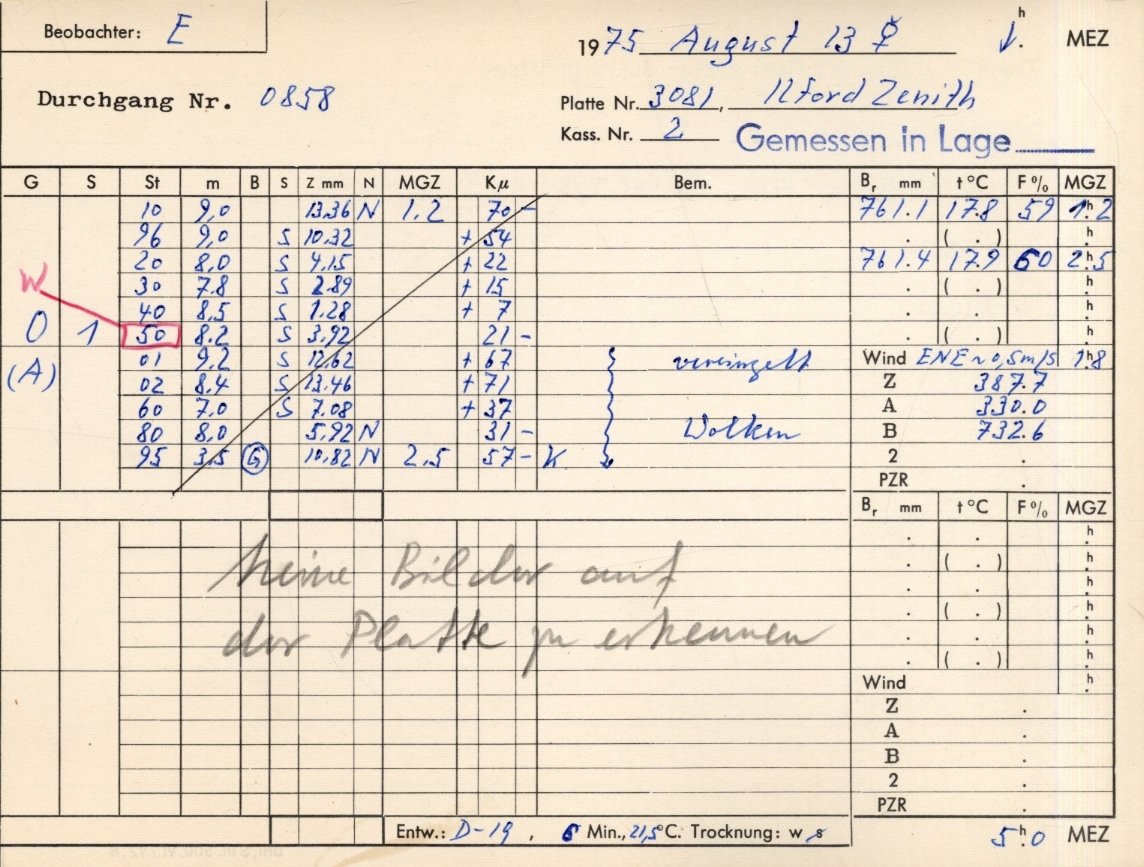 Beobachter: E
1975 August 13 ☿ h MEZ
Durchgang Nr. 0858
Platte Nr. 3081, Ilford Zenith
Kass. Nr. 2 Gemessen in Lage
G S St m B S Z mm N MGZ Kμ Bem. Br mm t °C F % MGZ
10 9,0 13.36 N 1,2 70 - 761.1 17.8 59 1h2
96 9,0 S 10.32 + 54 . ( . ) h
20 8,0 S 4.15 + 22 761.4 17.9 60 2h5
W 30 7.8 S 2.89 + 15 . ( . ) h
40 8,5 S 1.28 + 7 . . h
0 1 50 8.2 S 3,92 21 - . ( . ) h
01 9,2 S 12,62 + 67 vereinzelt Wind ENE ~ 0,5m/s 1h8
(A) 02 8,4 S 13.46 + 71 Z 387.7
60 7.0 S 7.08 + 37 A 330.0
80 8,0 5,92 N 31 - Wolken B 732.6
95 3,5 G 10,82 N 2,5 57 - K 2 .
PZR .
Br mm t °C F % MGZ
. . h
. ( . ) h
. . h
. ( . ) h
. . h
. ( . ) h
keine Bilder auf
der Platte zu erkennen
Wind h
Z .
A .
B .
2 .
PZR .
Entw.: D-19, 6 Min., 21,5°C. Trocknung: w s 5h0 MEZ